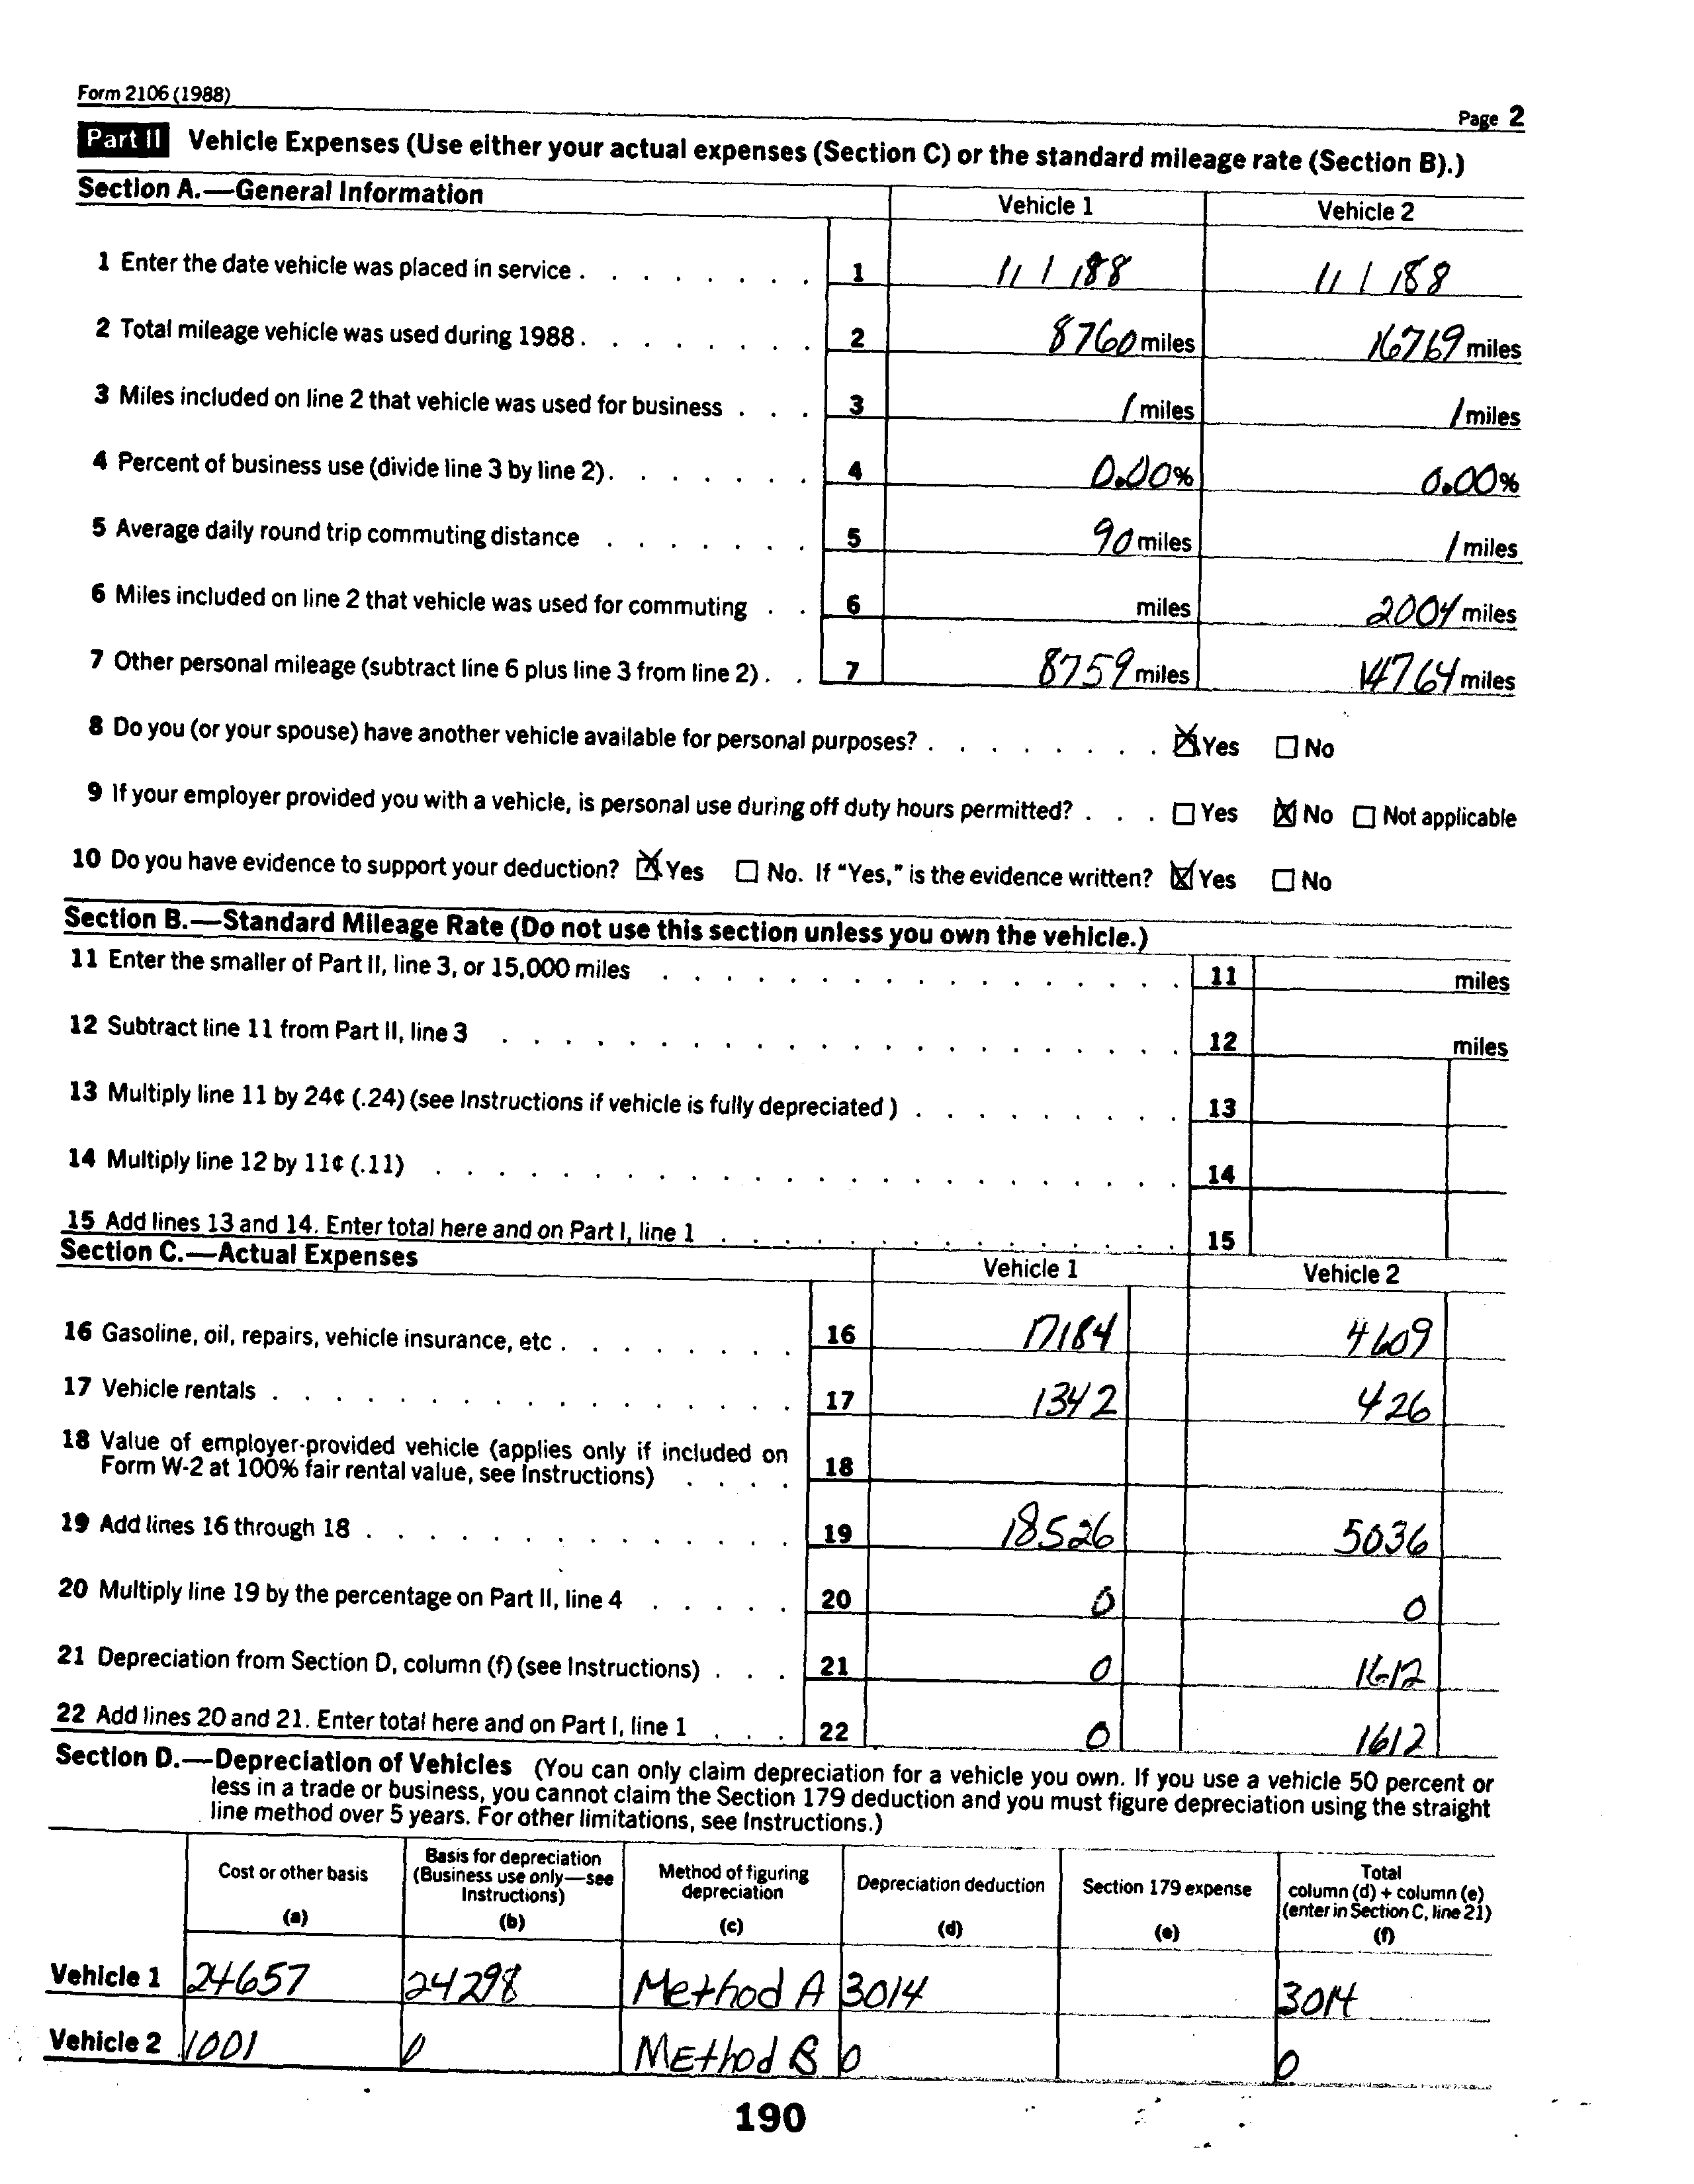 Form 2106 (1988)
Page 2
Part II Vehicle Expenses (Use either your actual expenses (Section C) or the standard mileage rate (Section B).)
Section A.—General Information Vehicle 1 Vehicle 2
1 Enter the date vehicle was placed in service . . . . . . . . 1 1/ 1 /88 1/ 1 /88
2 Total mileage vehicle was used during 1988 . . . . . . . . 2 8760 miles 16769 miles
3 Miles included on line 2 that vehicle was used for business . . . 3 1 miles 1 miles
4 Percent of business use (divide line 3 by line 2) . . . . . . . 4 0.00% 0.00%
5 Average daily round trip commuting distance . . . . . . . 5 90 miles 1 miles
6 Miles included on line 2 that vehicle was used for commuting . . 6 miles 2004 miles
7 Other personal mileage (subtract line 6 plus line 3 from line 2) . . 7 8759 miles 14764 miles
8 Do you (or your spouse) have another vehicle available for personal purposes? . . . . . . . . ☒ Yes ☐ No
9 If your employer provided you with a vehicle, is personal use during off duty hours permitted? . . . ☐ Yes ☒ No ☐ Not applicable
10 Do you have evidence to support your deduction? ☒ Yes ☐ No. If "Yes," is the evidence written? ☒ Yes ☐ No
Section B.—Standard Mileage Rate (Do not use this section unless you own the vehicle.)
11 Enter the smaller of Part II, line 3, or 15,000 miles . . . . . . . . . . . . . . . . 11 miles
12 Subtract line 11 from Part II, line 3 . . . . . . . . . . . . . . . . . . . . . 12 miles
13 Multiply line 11 by 24¢ (.24) (see Instructions if vehicle is fully depreciated ) . . . . . . . . . 13
14 Multiply line 12 by 11¢ (.11) . . . . . . . . . . . . . . . . . . . . . . . 14
15 Add lines 13 and 14. Enter total here and on Part I, line 1 . . . . . . . . . . . . . . 15
Section C.—Actual Expenses Vehicle 1 Vehicle 2
16 Gasoline, oil, repairs, vehicle insurance, etc . . . . . . . . 16 17184 4609
17 Vehicle rentals . . . . . . . . . . . . . . . . . 17 1342 426
18 Value of employer-provided vehicle (applies only if included on
Form W-2 at 100% fair rental value, see Instructions) . . . . 18
19 Add lines 16 through 18 . . . . . . . . . . . . . . 19 18526 5036
20 Multiply line 19 by the percentage on Part II, line 4 . . . . . 20 0 0
21 Depreciation from Section D, column (f) (see Instructions) . . . 21 0 1612
22 Add lines 20 and 21. Enter total here and on Part I, line 1 . . . 22 0 1612
Section D.—Depreciation of Vehicles (You can only claim depreciation for a vehicle you own. If you use a vehicle 50 percent or
less in a trade or business, you cannot claim the Section 179 deduction and you must figure depreciation using the straight
line method over 5 years. For other limitations, see Instructions.)
Cost or other basis
(a)
Basis for depreciation
(Business use only—see
Instructions)
(b)
Method of figuring
depreciation
(c)
Depreciation deduction
(d)
Section 179 expense
(e)
Total
column (d) + column (e)
(enter in Section C, line 21)
(f)
Vehicle 1 24657 24298 Method A 3014 3014
Vehicle 2 1001 0 Method B 0 0
190